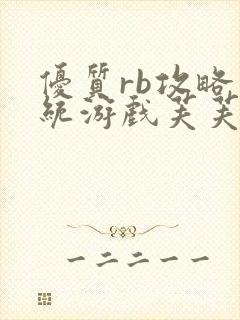 優質rb攻略
統游戲芙芙
一二二一一